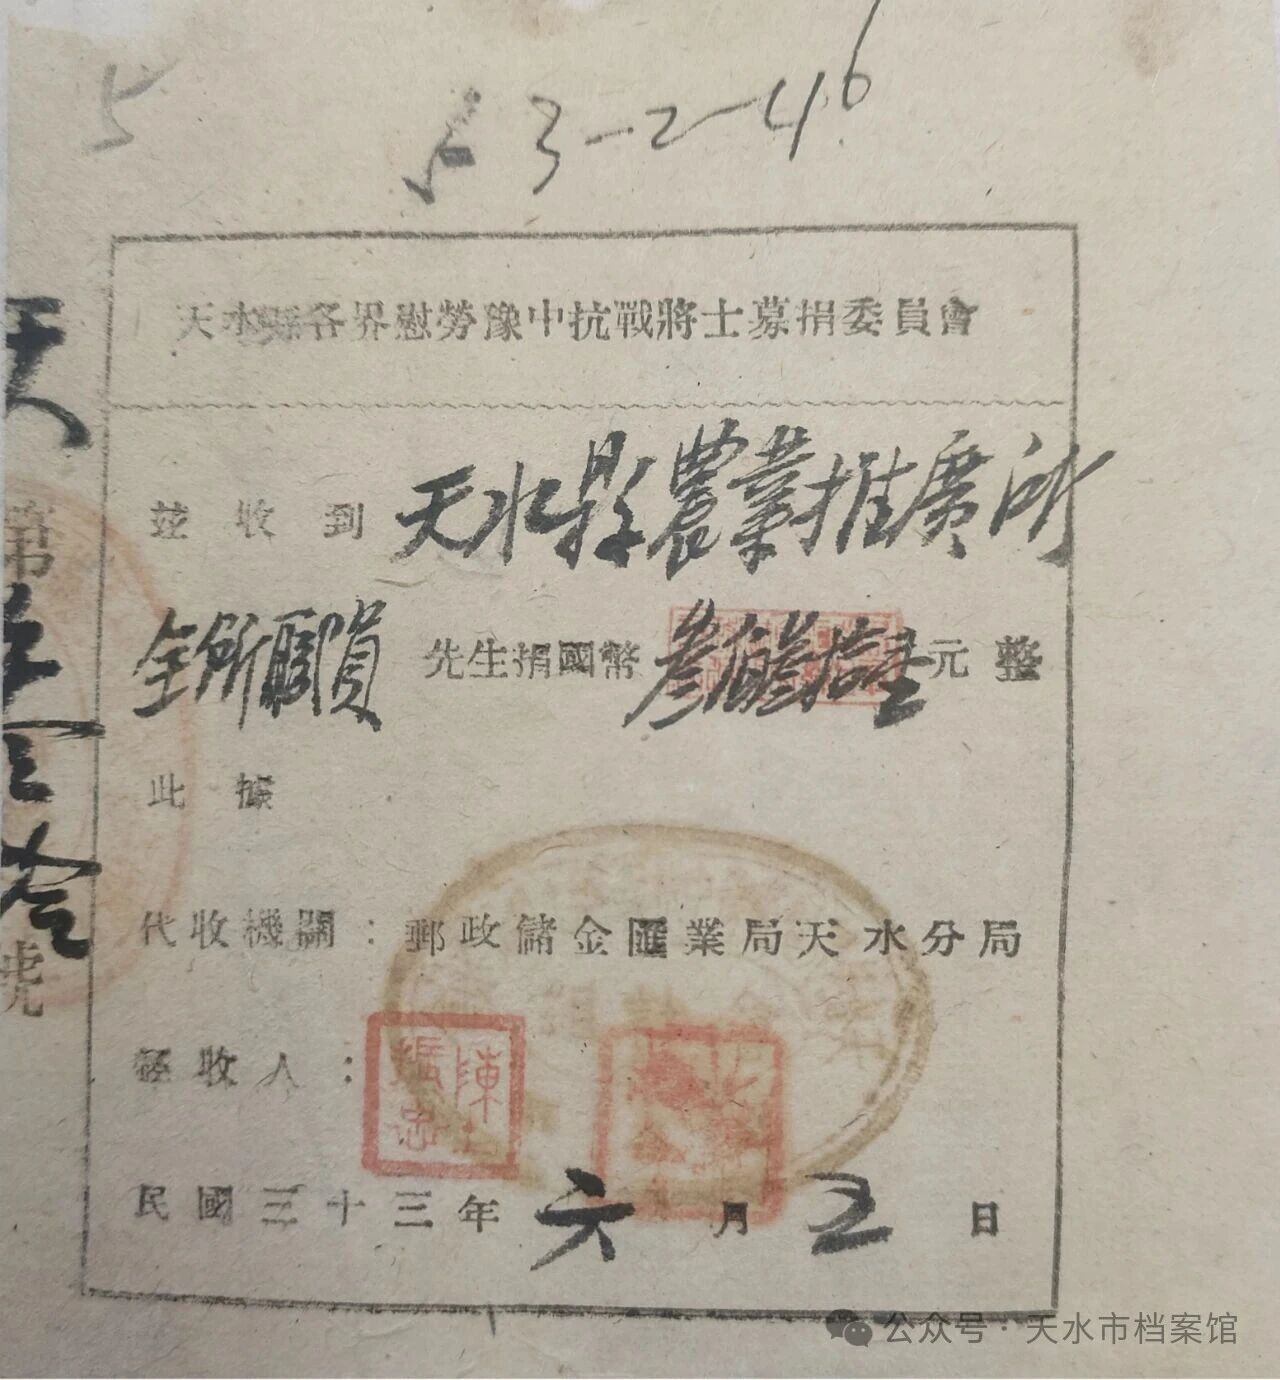 5
63-2-46
天水縣各界慰勞豫中抗戰將士募捐委員會
茲收到天水县農業推廣所
全所職員先生捐國幣叁佰叁拾壹元整
此據
代收機關：郵政儲金匯業局天水分局
經收人：
陳振
民國三十三年六月五日
天
第
號
公众号·天水市档案馆